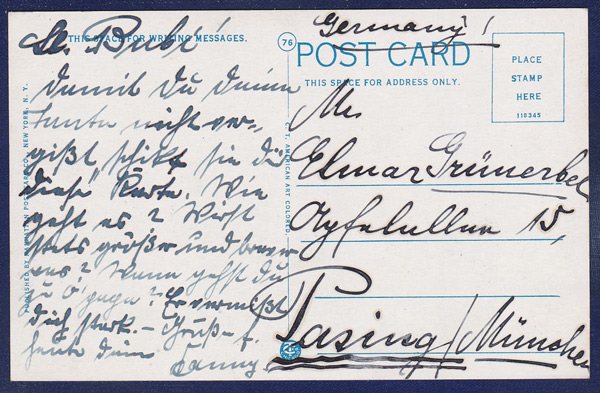 THIS SPACE FOR WRITING MESSAGES.
Lb. Bubi!
Damit Du Deine
Tante nicht ver-
gißt schikt sie Dir
diese Karte. Wie
geht es? Wirst
stets größer und braver
was? Wann gehst Du
zu O'papa? Er vermißt
Dich stark. – Gruß – f.
heute Deine
Fanny.
PUBLISHED BY MANHATTAN POST CARD CO., NEW YORK, N. Y.
C. T. AMERICAN ART COLORED
76
Germany!
POST CARD
THIS SPACE FOR ADDRESS ONLY.
PLACE
STAMP
HERE
110345
Mr.
Elmar Grünerbel
15,
Pasing/München